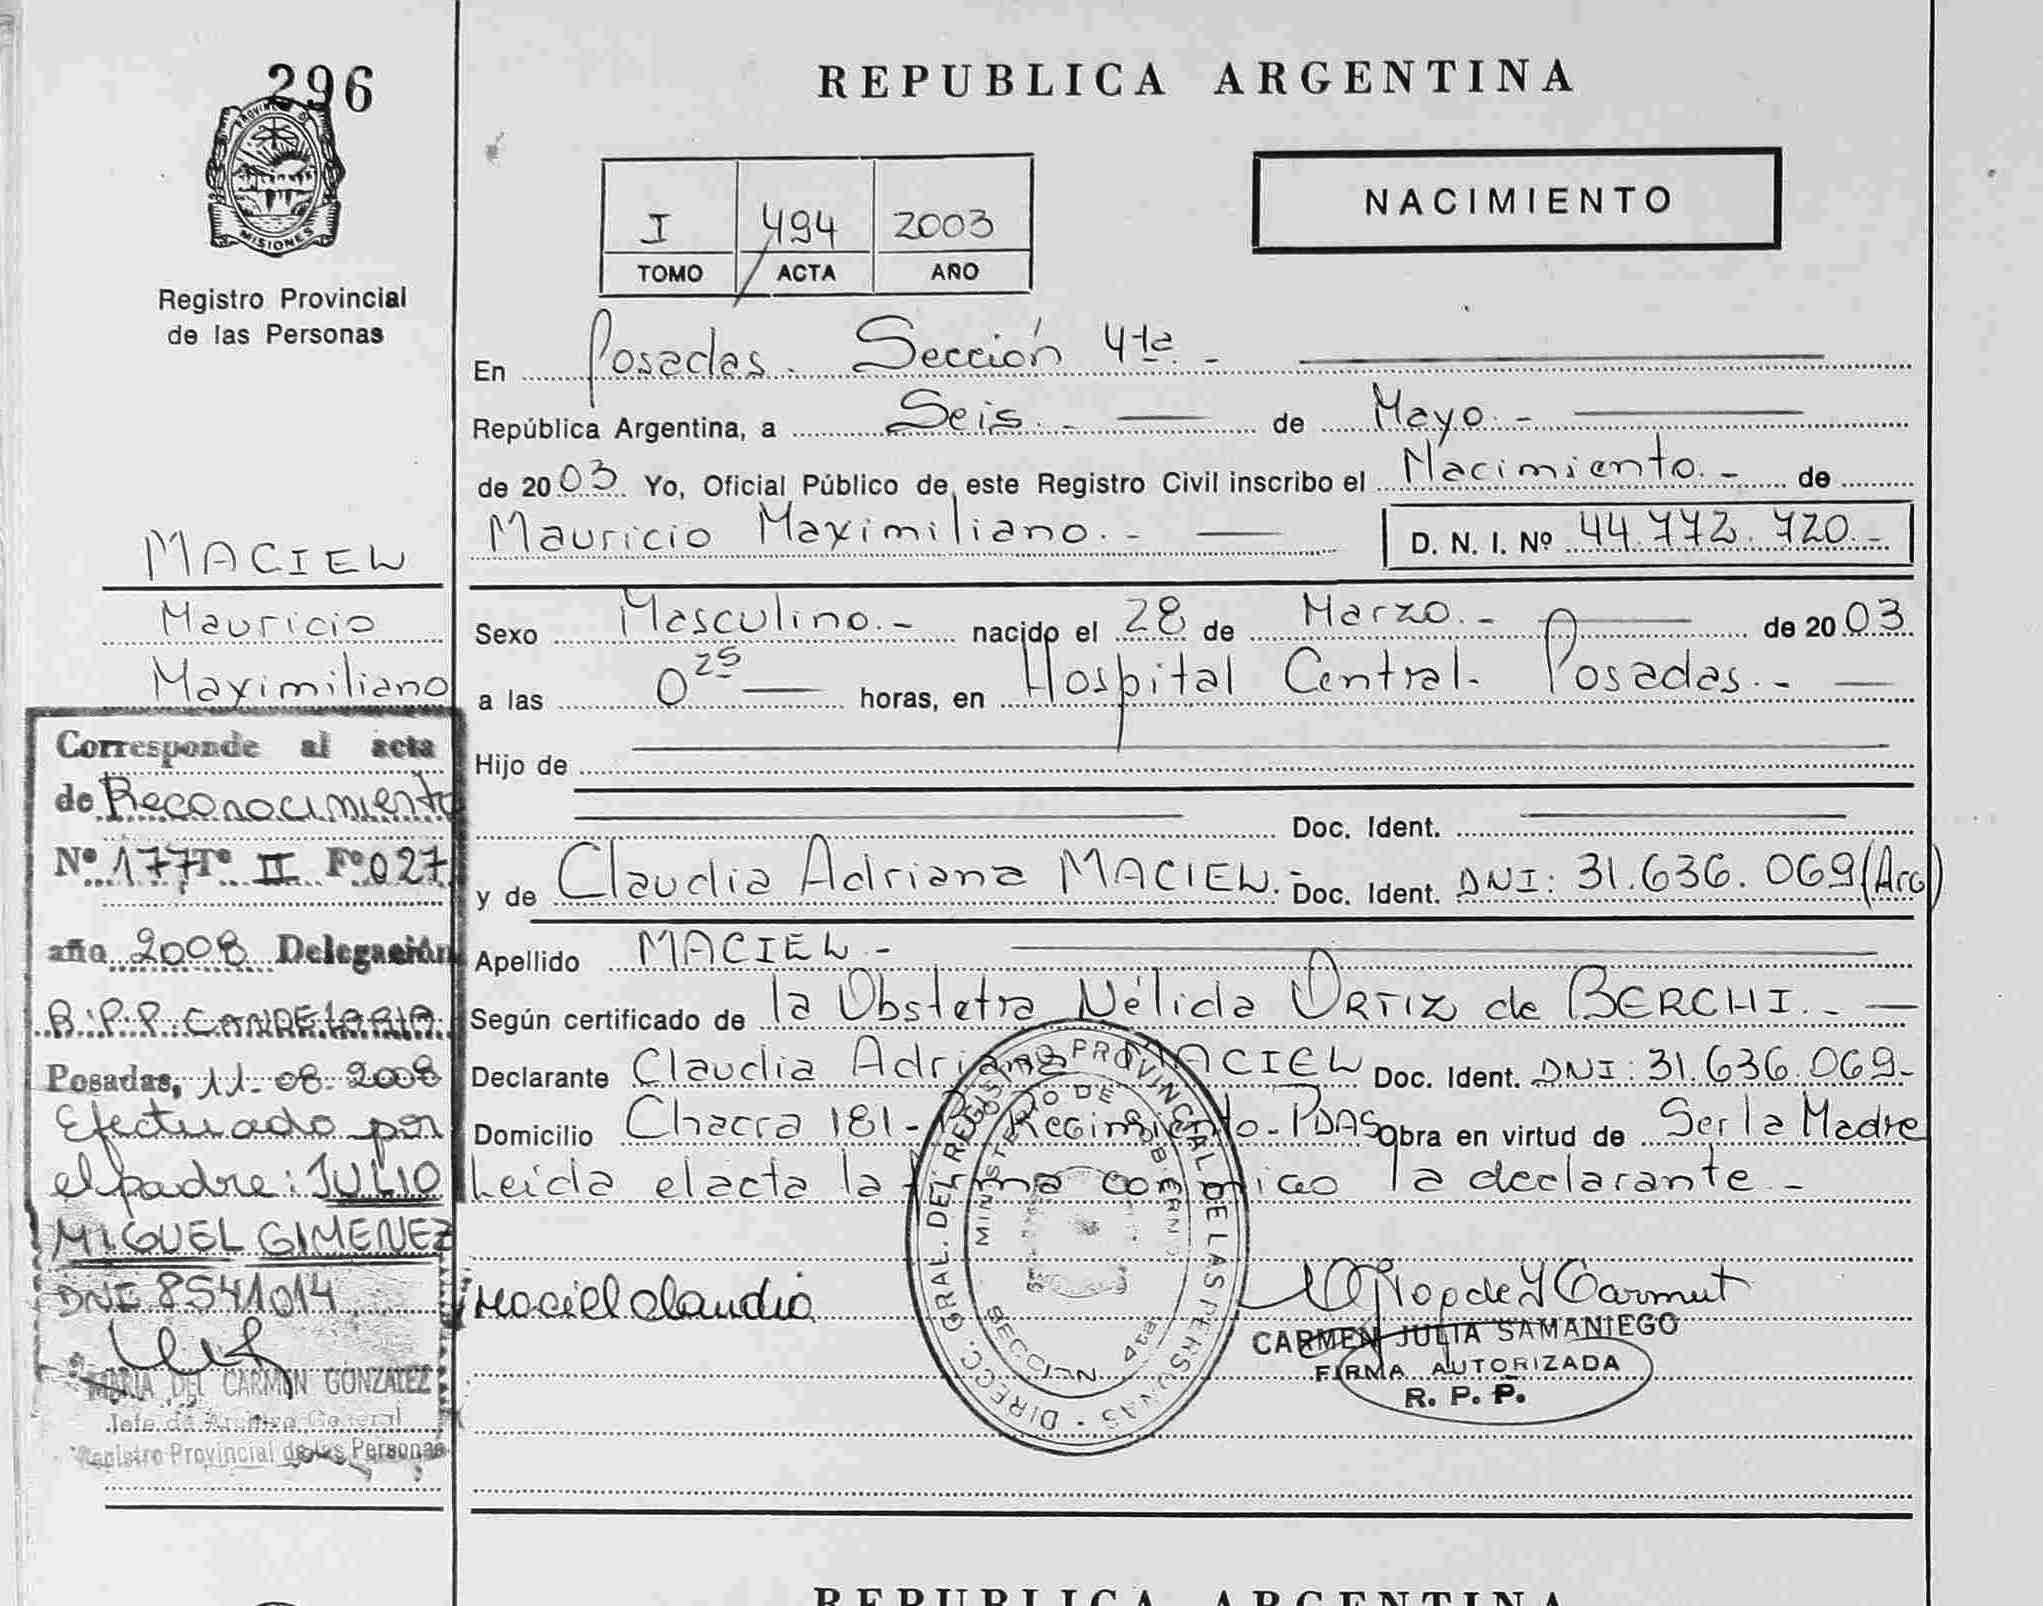 296
PROVINCIA DE
MISIONES
Registro Provincial
de las Personas
MACIEL
Mauricio
Maximiliano
Corresponde al acta
de Reconocimiento
Nº 177 Tº II Fº 027
año 2008 Delegación
R.P.P. CANDELARIA
Posadas, 11-08-2008
Efectuado por
el padre: JULIO
MIGUEL GIMENEZ
DNI 8541014
MARIA DEL CARMEN GONZALEZ
Jefe de Archivo General
Registro Provincial de las Personas
REPUBLICA ARGENTINA
I 494 2003
TOMO ACTA AÑO
NACIMIENTO
En Posadas. Sección 4ta. -
República Argentina, a Seis. - de Mayo. -
de 2003. Yo, Oficial Público de este Registro Civil inscribo el Nacimiento. - de
Mauricio Maximiliano. - D. N. I. Nº 44.772.720. -
Sexo Masculino. - nacido el 28 de Marzo. - de 2003
a las 0 25 horas, en Hospital Central. Posadas. -
Hijo de
Doc. Ident.
y de Claudia Adriana MACIEL. - Doc. Ident. DNI: 31.636.069 (Arg)
Apellido MACIEL -
Según certificado de la Obstetra Nélida ORTIZ de BERCHI. -
Declarante Claudia Adriana MACIEL Doc. Ident. DNI: 31.636.069-
Domicilio Chacra 181- Regimiento - PDAS Obra en virtud de Ser la Madre
Leída el acta la firma conmigo la declarante -
Maciel Claudia
DIRECC. GRAL. DEL REGISTRO PROVINCIAL DE LAS PERSONAS
MINISTERIO DE GOBIERNO
SECCION 4ta.
CARMEN JULIA SAMANIEGO
FIRMA AUTORIZADA
R. P. P.
REPUBLICA ARGENTINA